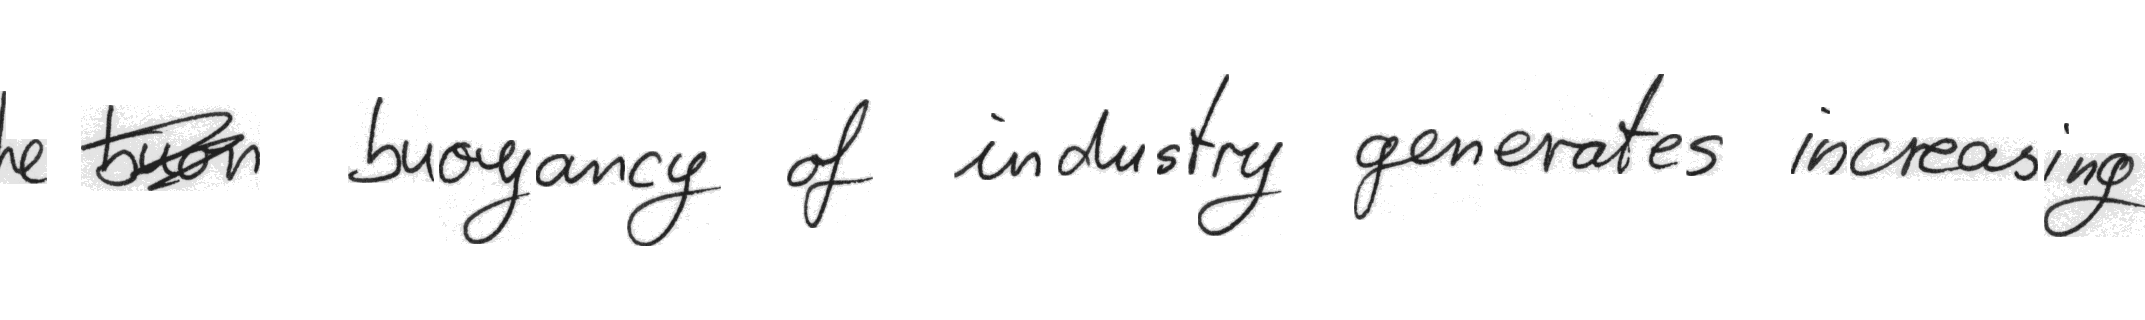 he buon buoyancy of industry generates increasing